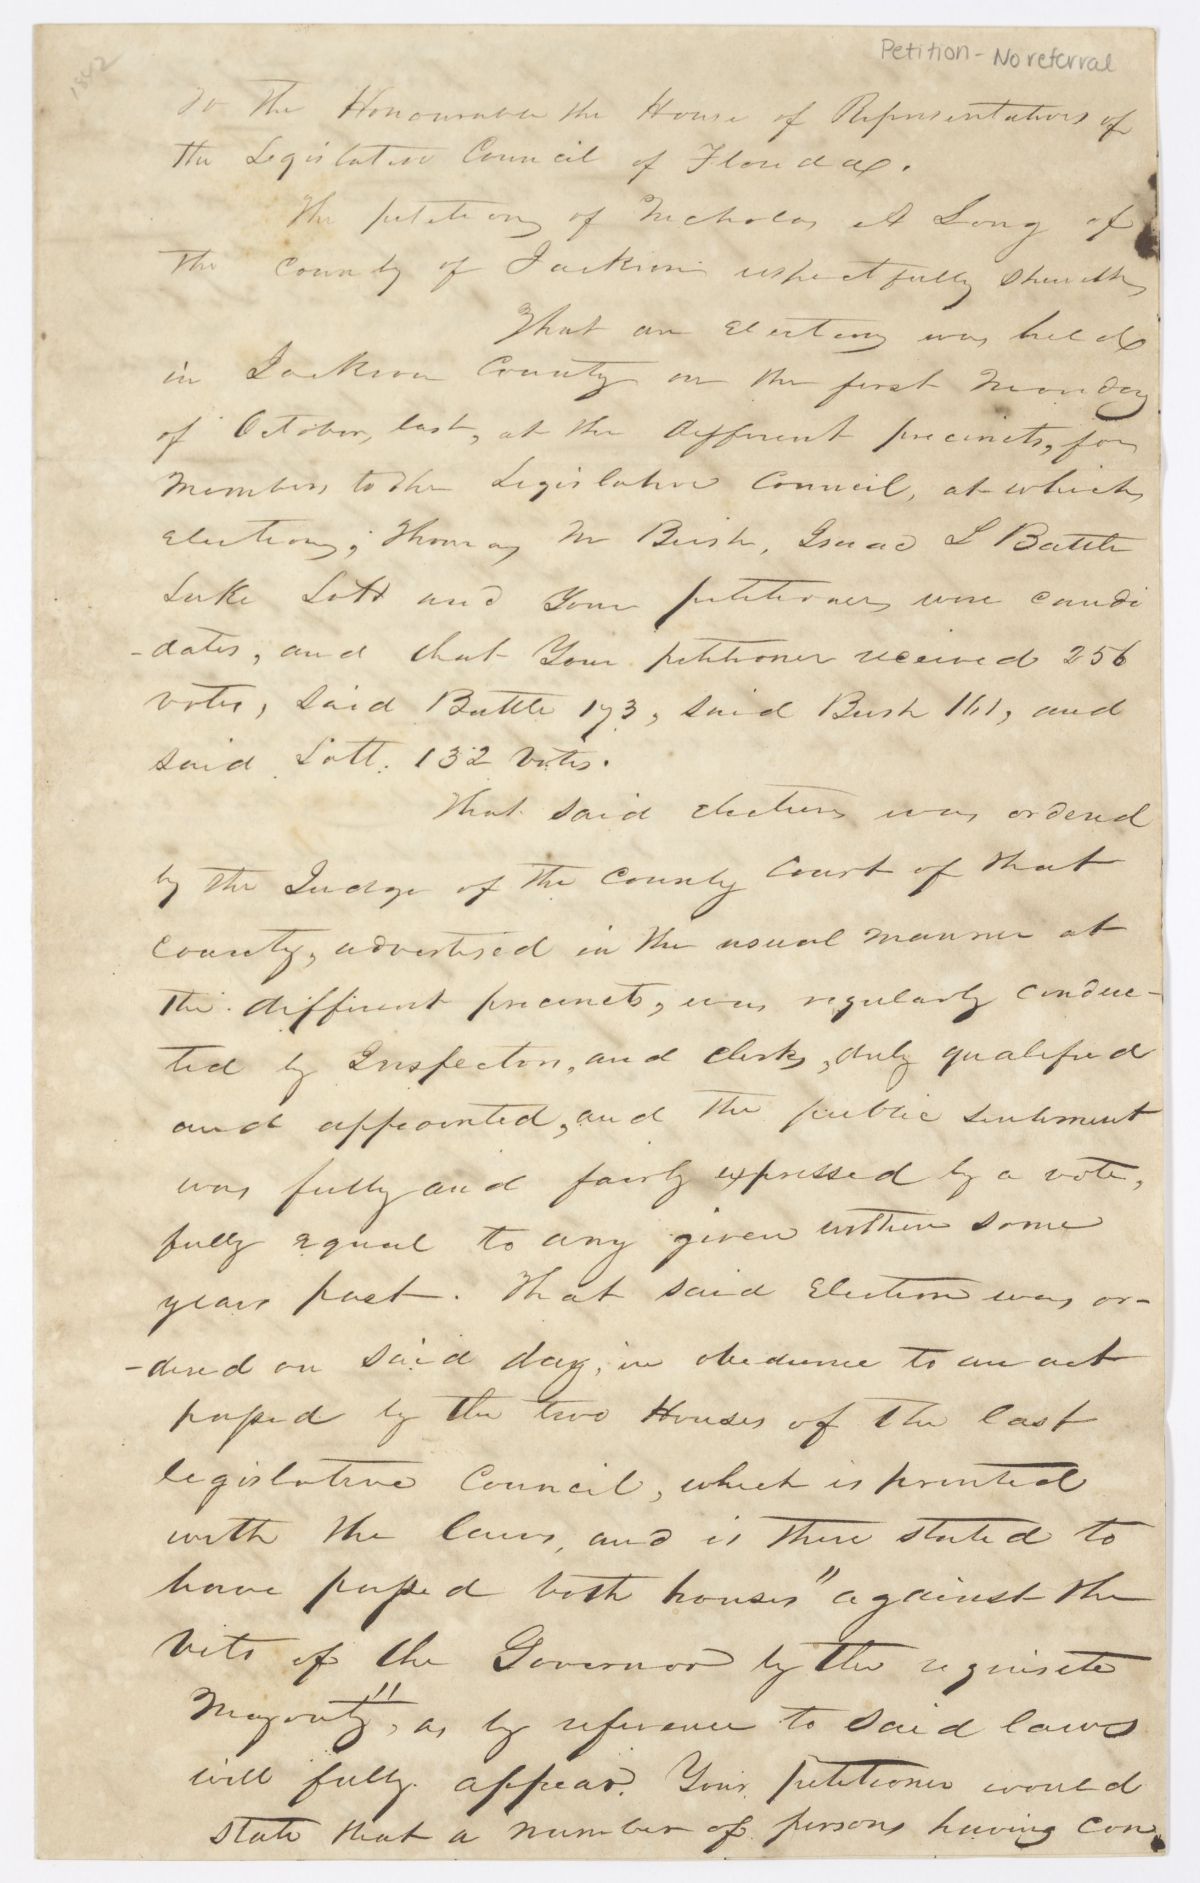 1842
Petition - No referral
To the Honourable the House of Representatives of
the Legislative Council of Florida.
The petition of Nicholas A Long of
the County of Jackson respectfully sheweth
That an Election was held
in Jackson County on the first Monday
of October, last, at the different precincts, for
Members to the Legislative Council, at which
election; Thomas M Bush, Isaac L Battle
Luke Lott and Your petitioner were candi
-dates, and that Your petitioner received 256
votes, said Battle 173, said Bush 161, and
said Lott. 132 votes.
That said election was ordered
by the Judge of the County Court of that
County, advertised in the usual manner at
the different precincts, was regularly conduc-
ted by Inspectors, and clerks, duly qualified
and appointed, and the public sentiment
was fully and fairly expressed by a vote,
fully equal to any given within some
years past. That said Election was or-
-dered on said day, in obedience to an act
passed by the two Houses of the last
legislative Council, which is printed
with the laws, and is there stated to
have passed both houses "against the
veto of the Governor by the requisite
Majority", as by reference to said laws
will fully appear. Your petitioner would
state that a number of persons having con